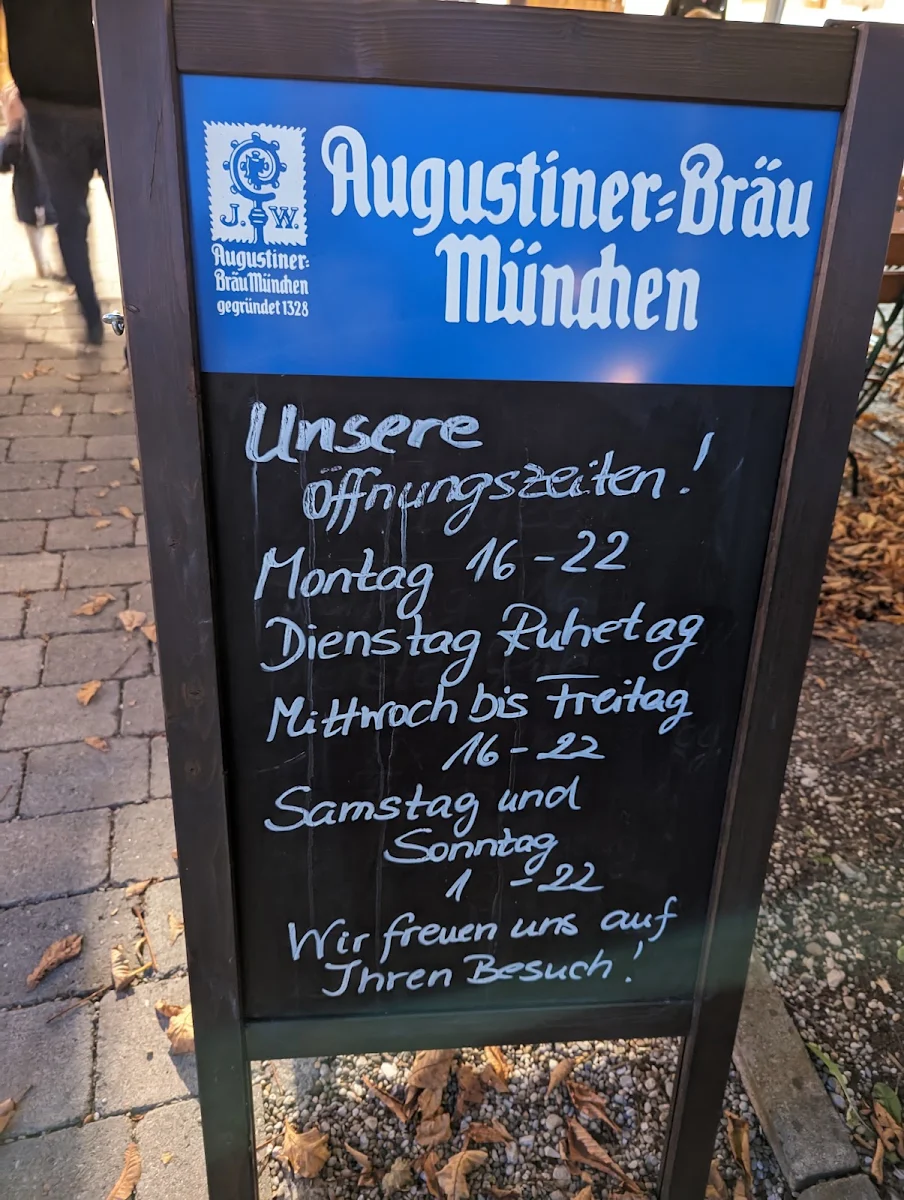 J. W.
Augustiner=
Bräu München
gegründet 1328
Augustiner=Bräu
München
Unsere
Öffnungszeiten!
Montag 16-22
Dienstag Ruhetag
Mittwoch bis Freitag
16-22
Samstag und
Sonntag
1 -22
Wir freuen uns auf
Ihren Besuch!